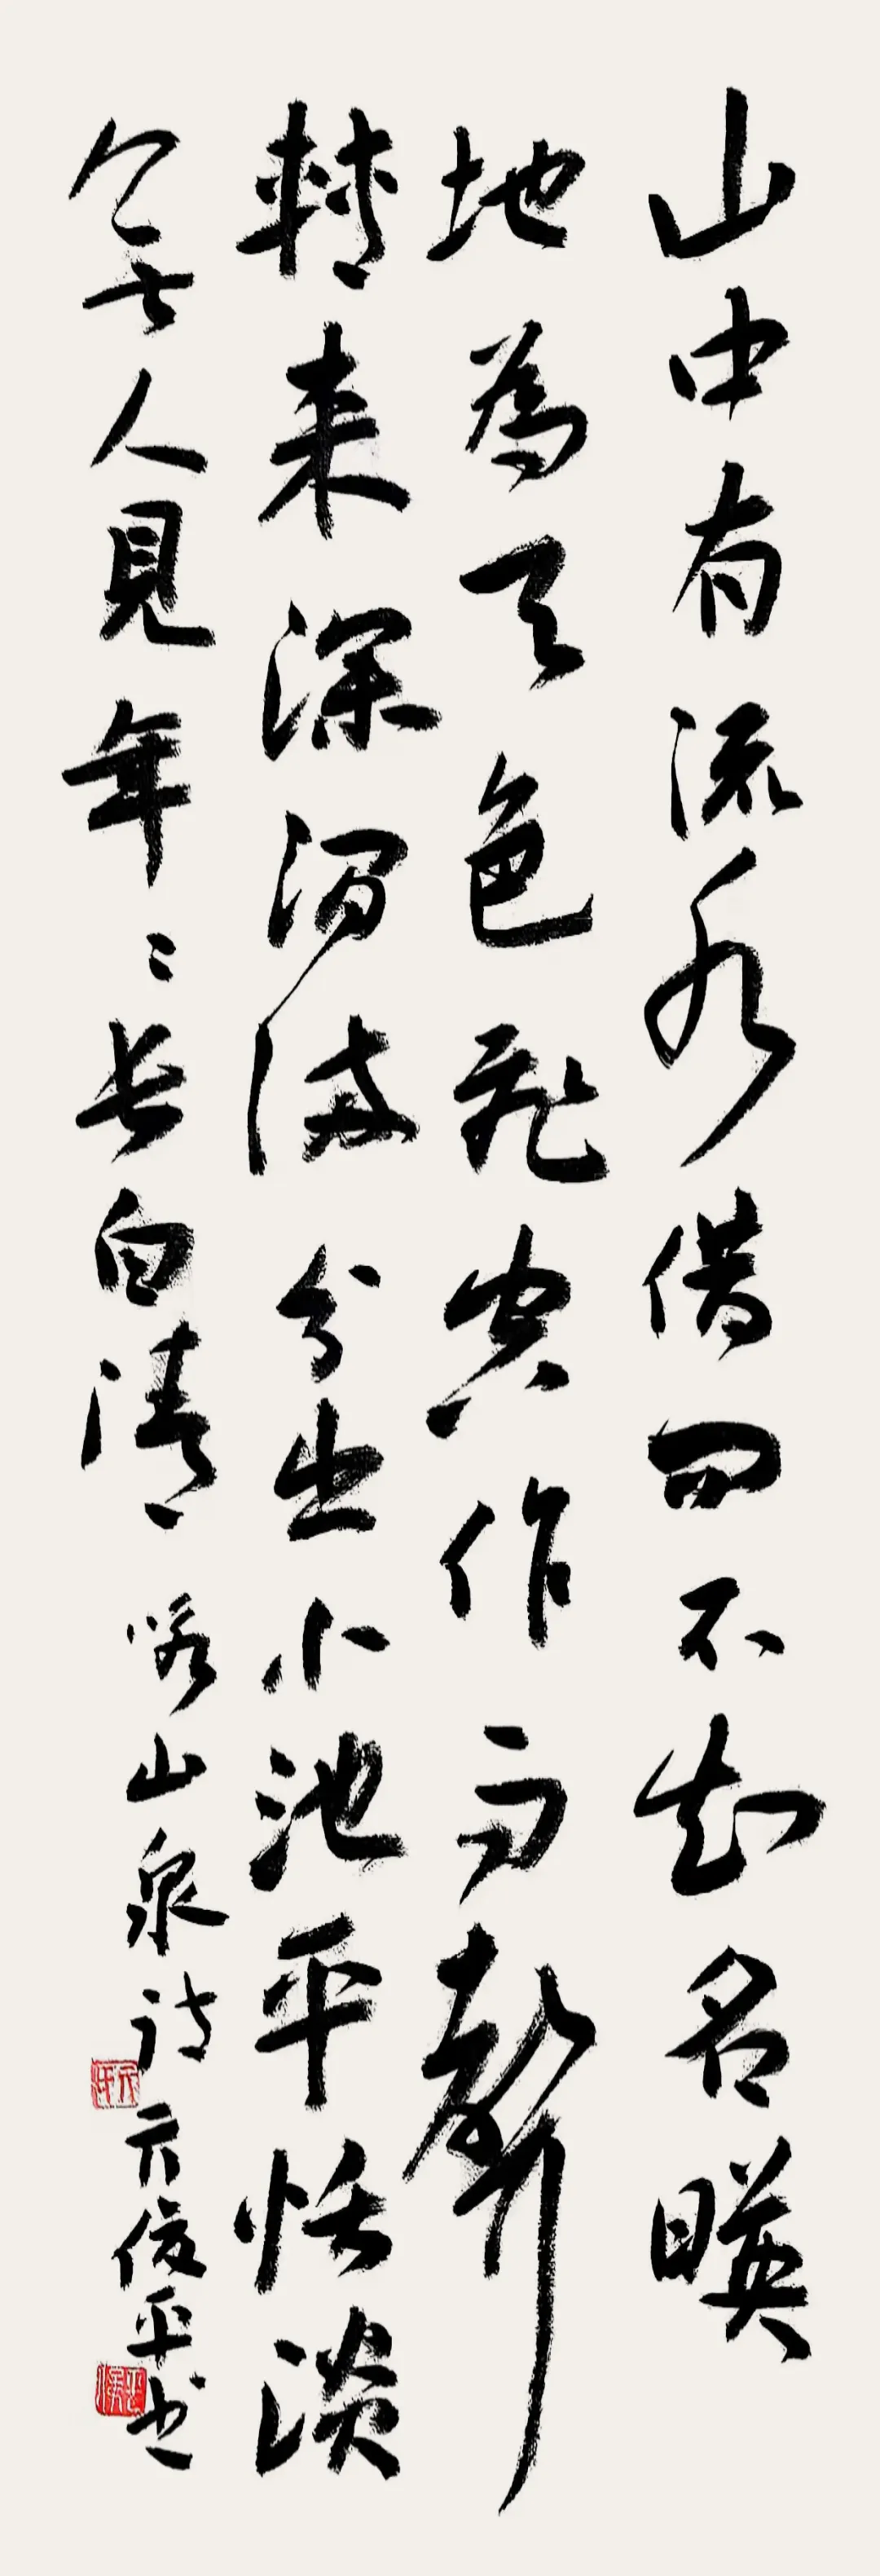 山中有流水借問不知名暎
地為天色飛空作雨聲
轉来深澗滿分出小池平恬淡
無人見年々長自清 咏山泉詩 亓俊平书